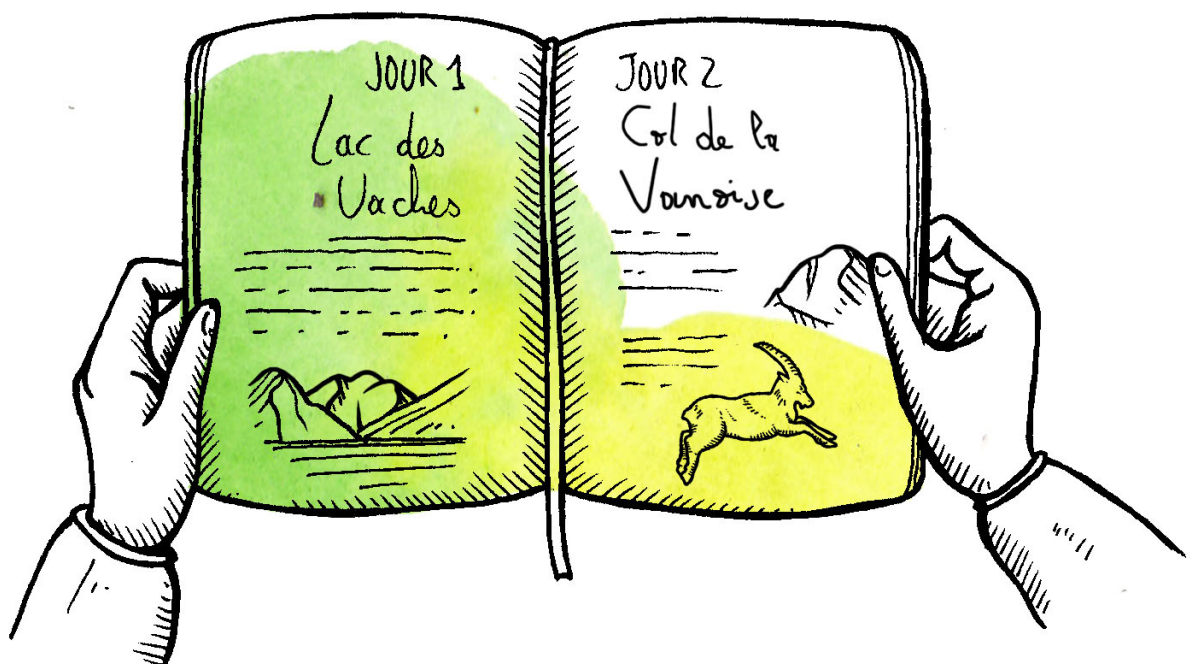 JOUR 1
Lac des
Vaches
JOUR 2
Col de la
Vanoise